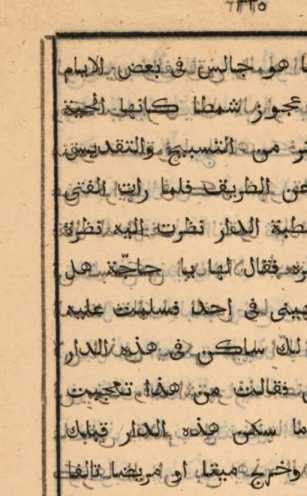 هو جالس فى بعض الايام
عجوز شمطا كانها الحية
من التسبيح والتقديس
عن الطريق فلما رات الفتى
الدار نظرت اليه نظرة
فقال لها يا حاجة هل
فى احد فسلمت عليه
ساكن فى هذه الدار
فقالت من هذا تعجبت
ما سكن هذه الدار قبلك
واخرج ميتا او مريضا تالفا